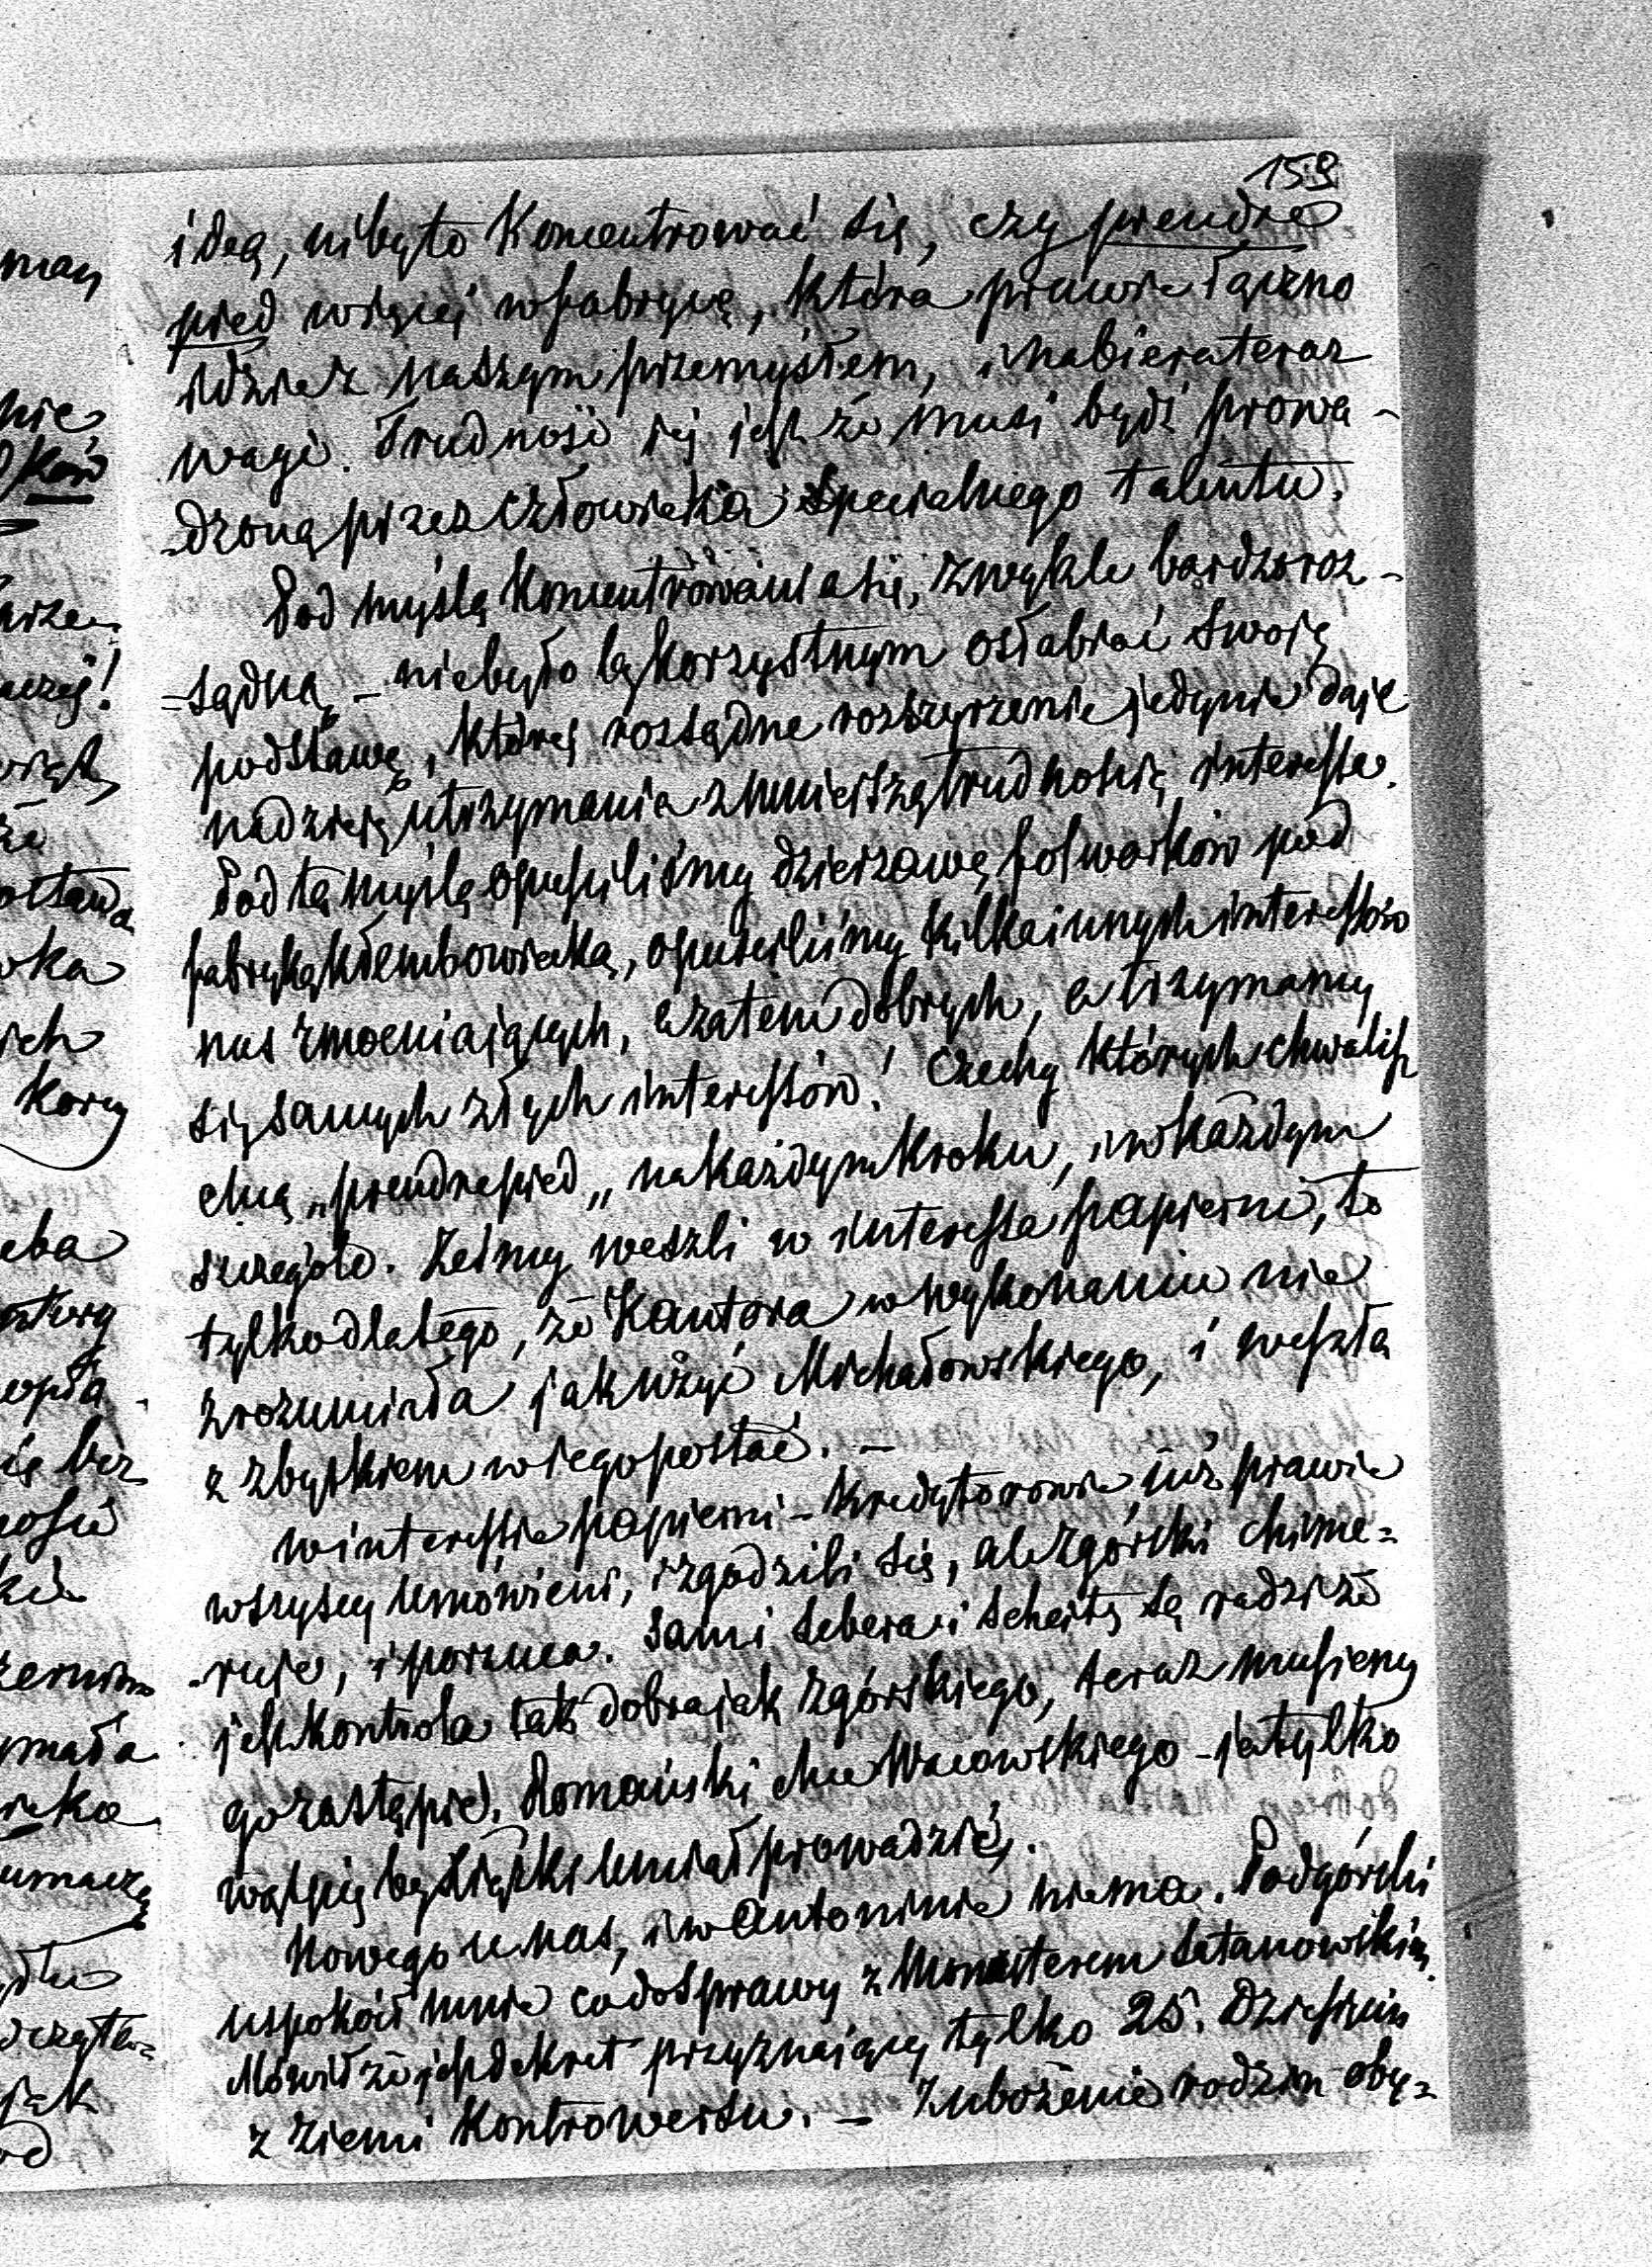 159
ideą, niby to koncentrować się, czy prendre
pied więcej w fabrykę, która prawie łączno
idzie z naszym przemysłem, i nabiera teraz
wagi. Trudność jej jest że musi bydź prowa-
-dzoną przez człowieka specialnego talentu.
Pod myślą koncentrowania się, zwykle bardzo roz-
-sądną – niebyło by korzystnym osłabiać swoję
podstawę, któréj rozsądne rozszyrzenie jedynie daje
nadzieję utrzymania z mnieiszą trudnością interessa.
Pod tą myślą opuściliśmy dzierżawę folwarków pod
fabryką Klembowiecką, opuściliśmy kilka innych interessow
nas zmocniających, a zatem dobrych, a trzymamy
się samych złych interessów! Czechy których chwalisz
chcą „prendre pied„ na każdym kroku, i w każdym
szczególe. Żeśmy weszli w interessa papierni, to
tylko dlatego, że Kantora w wykonaniu nie
zrozumiała jak użyć Michałowskiego, i weszła
z zbytkiem w iego postać. –
W interessie papierni – kredytorowie iuż prawie
wszyscy umówieni, i zgodzili się, ale Zgórski chime=
-ruje, i porzuca. Sami Sebera i Scheitz są radzi że
jest kontrola tak dobra jak Zgórskiego, teraz musiemy
go zastąpić. Romański chce Wacowskiego – ja tylko
wątpię by książki umiał prowadzić.
Nowego u nas, i w Antoninie niema. Podgórski
uspokóił mnie co do sprawy z Monasterem Satanowskim.
Mówił że jest dekret przyznaiący tylko 25. dziesięcin
z ziemi kontrowersu. – Zubożenie rodzin oby=